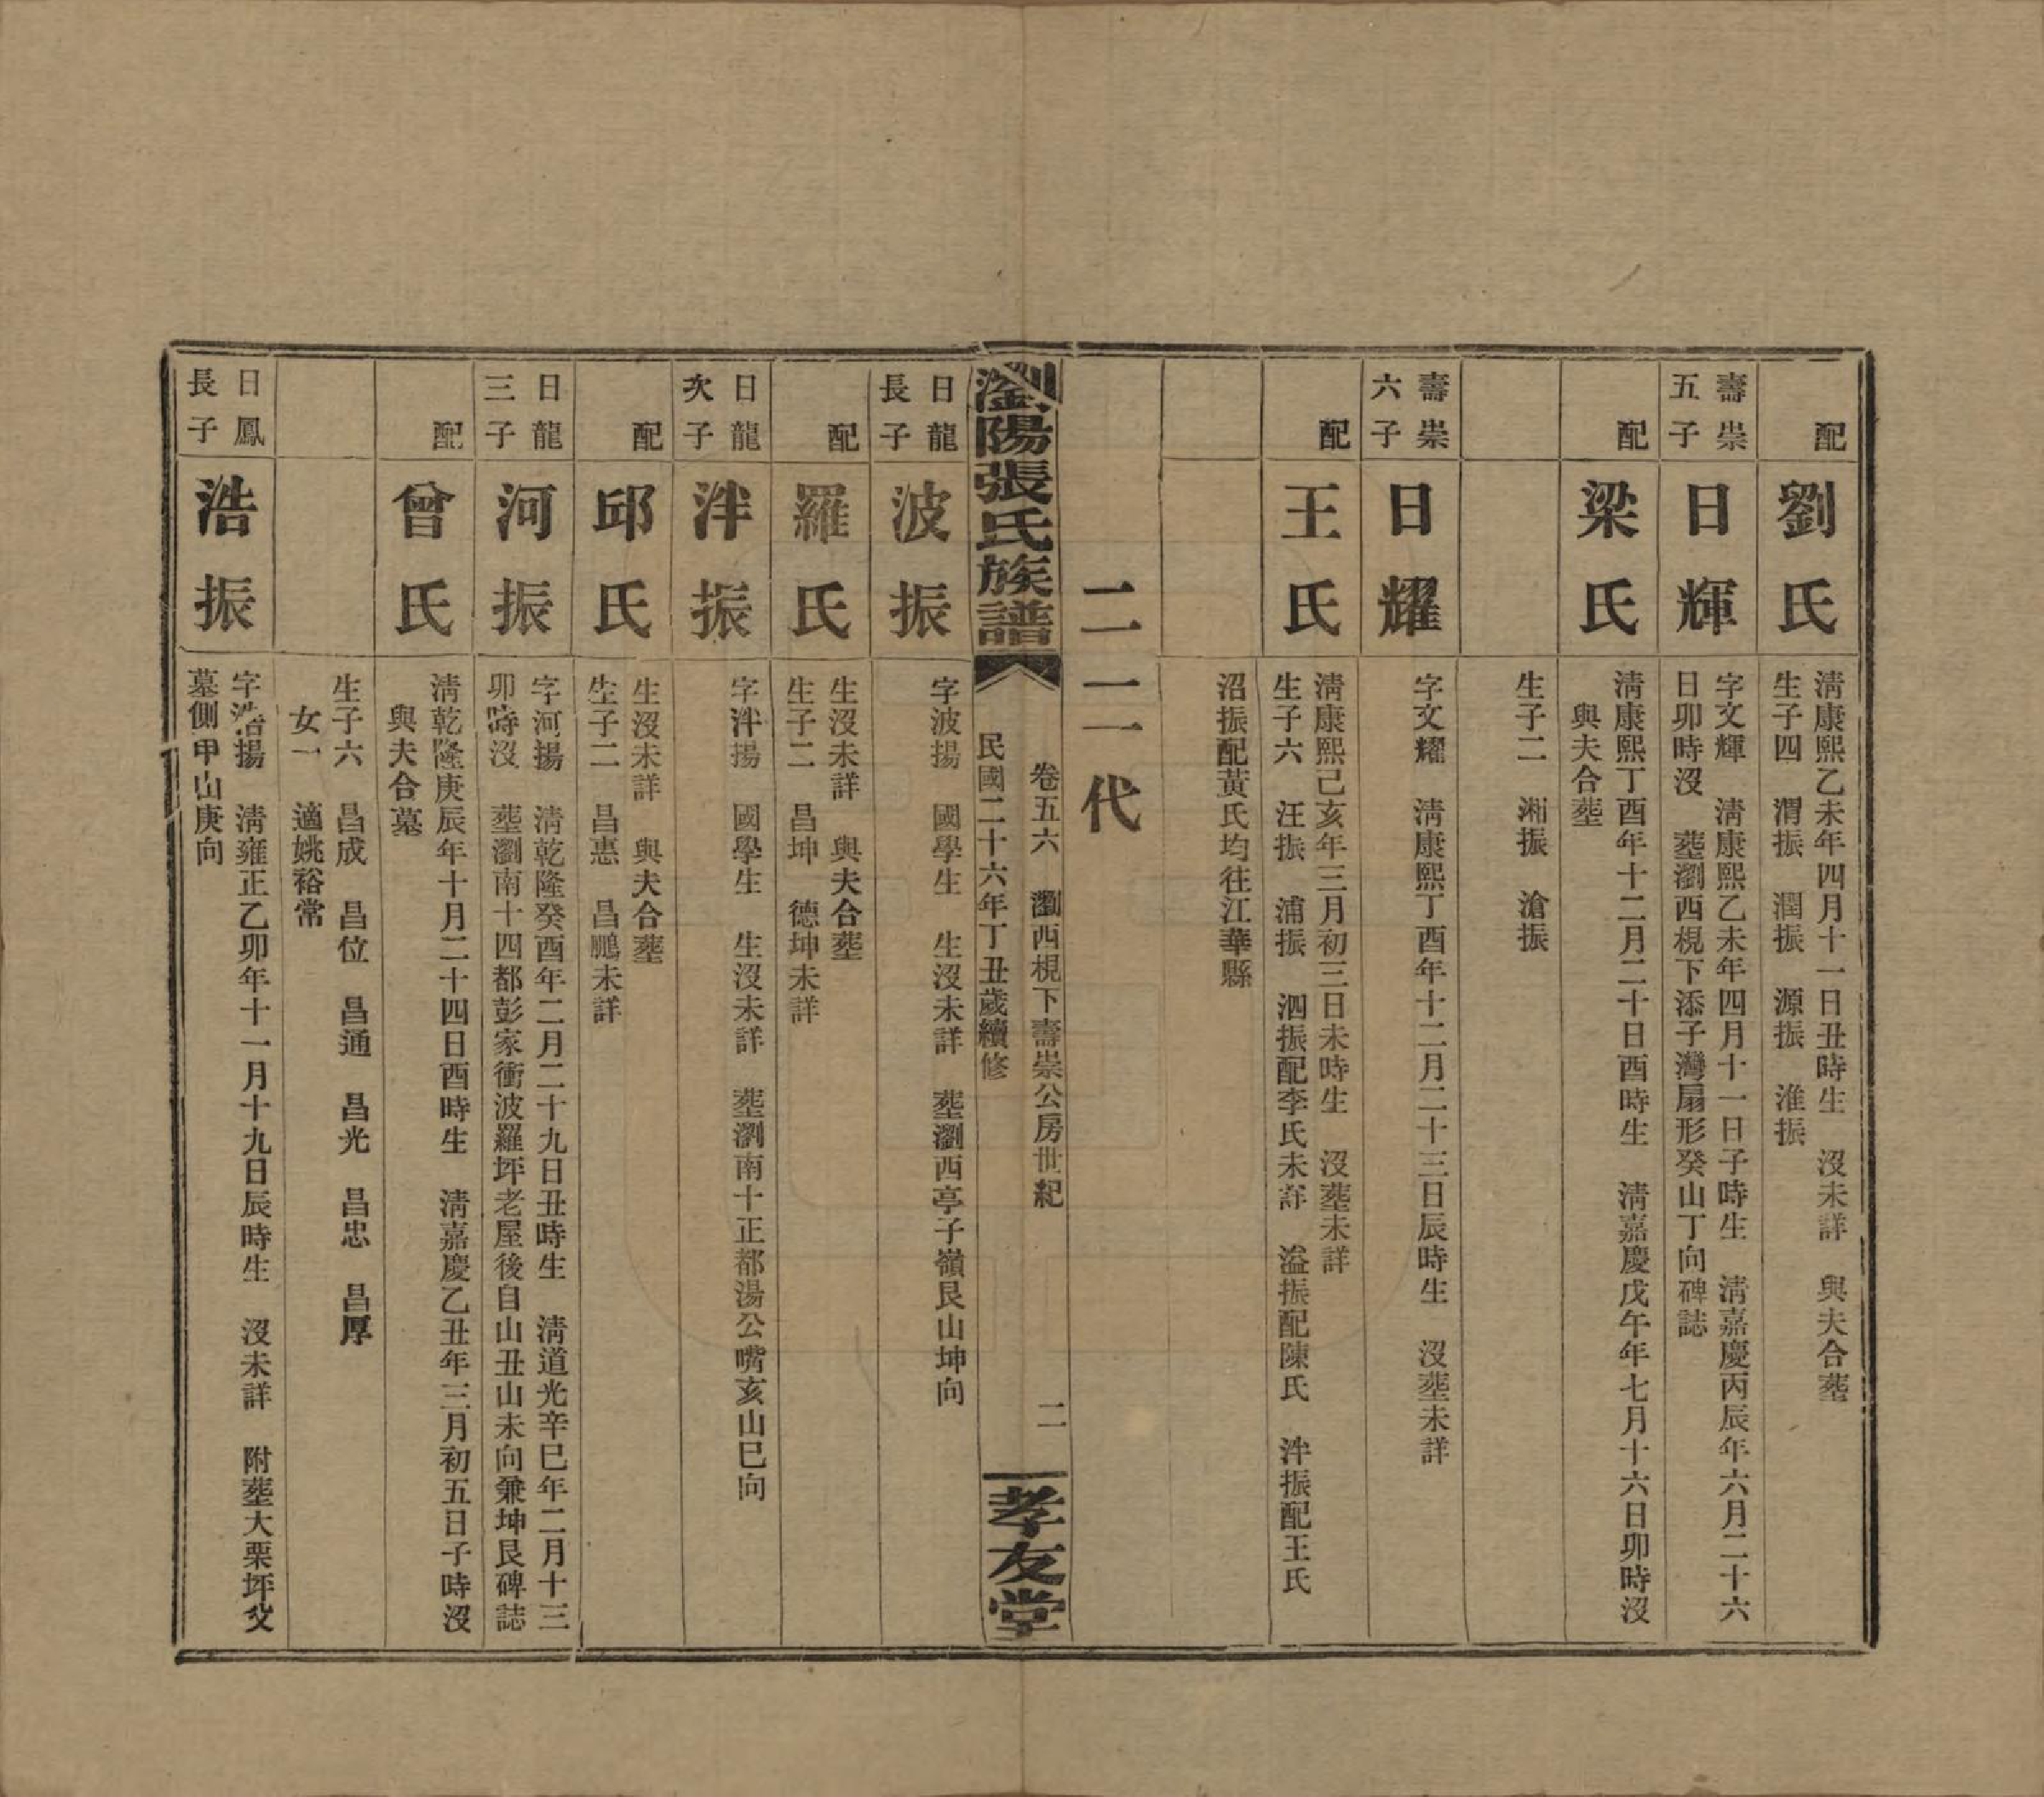 配
劉氏
淸康熙乙未年四月十一日丑時生　沒未詳　與夫合塟
生子四　渭振　潤振　源振　淮振
壽崇
五子
日輝
字文輝　淸康熙乙未年四月十一日子時生　淸嘉慶丙辰年六月二十六
日卯時沒　塟瀏西梘下添子灣扇形癸山丁向碑誌
配
梁氏
淸康熙丁酉年十二月二十日酉時生　淸嘉慶戊午年七月十六日卯時沒
與夫合塟
生子二　湘振　滄振
壽崇
六子
日耀
字文耀　淸康熙丁酉年十二月二十三日辰時生　沒塟未詳
配
王氏
淸康熙己亥年三月初三日未時生　沒塟未詳
生子六　汪振　浦振　泗振配李氏未詳　溢振配陳氏　泮振配王氏
沼振配黃氏均往江華縣
二二代
瀏陽張氏族譜
卷五六　瀏西梘下壽崇公房世紀　二
民國二十六年丁丑歲續修
孝友堂
日龍
長子
波振
字波揚　國學生　生沒未詳　塟瀏西亭子嶺艮山坤向
配
羅氏
生沒未詳　與夫合塟
生子二　昌坤　德坤未詳
日龍
次子
泮振
字泮揚　國學生　生沒未詳　塟瀏南十正都湯公嘴亥山巳向
配
邱氏
生沒未詳　與夫合塟
生子二　昌惠　昌鵬未詳
日龍
三子
河振
字河揚　淸乾隆癸酉年二月二十九日丑時生　淸道光辛巳年二月十三
卯時沒　塟瀏南十四都彭家衝波羅坪老屋後自山丑山未向兼坤艮碑誌
配
曾氏
淸乾隆庚辰年十月二十四日酉時生　淸嘉慶乙丑年三月初五日子時沒
與夫合墓
生子六　昌成　昌位　昌通　昌光　昌忠　昌厚
女一　適姚裕常
日鳳
長子
浩振
字浩揚　淸雍正乙卯年十一月十九日辰時生　沒未詳　附塟大栗坪父
墓側甲山庚向